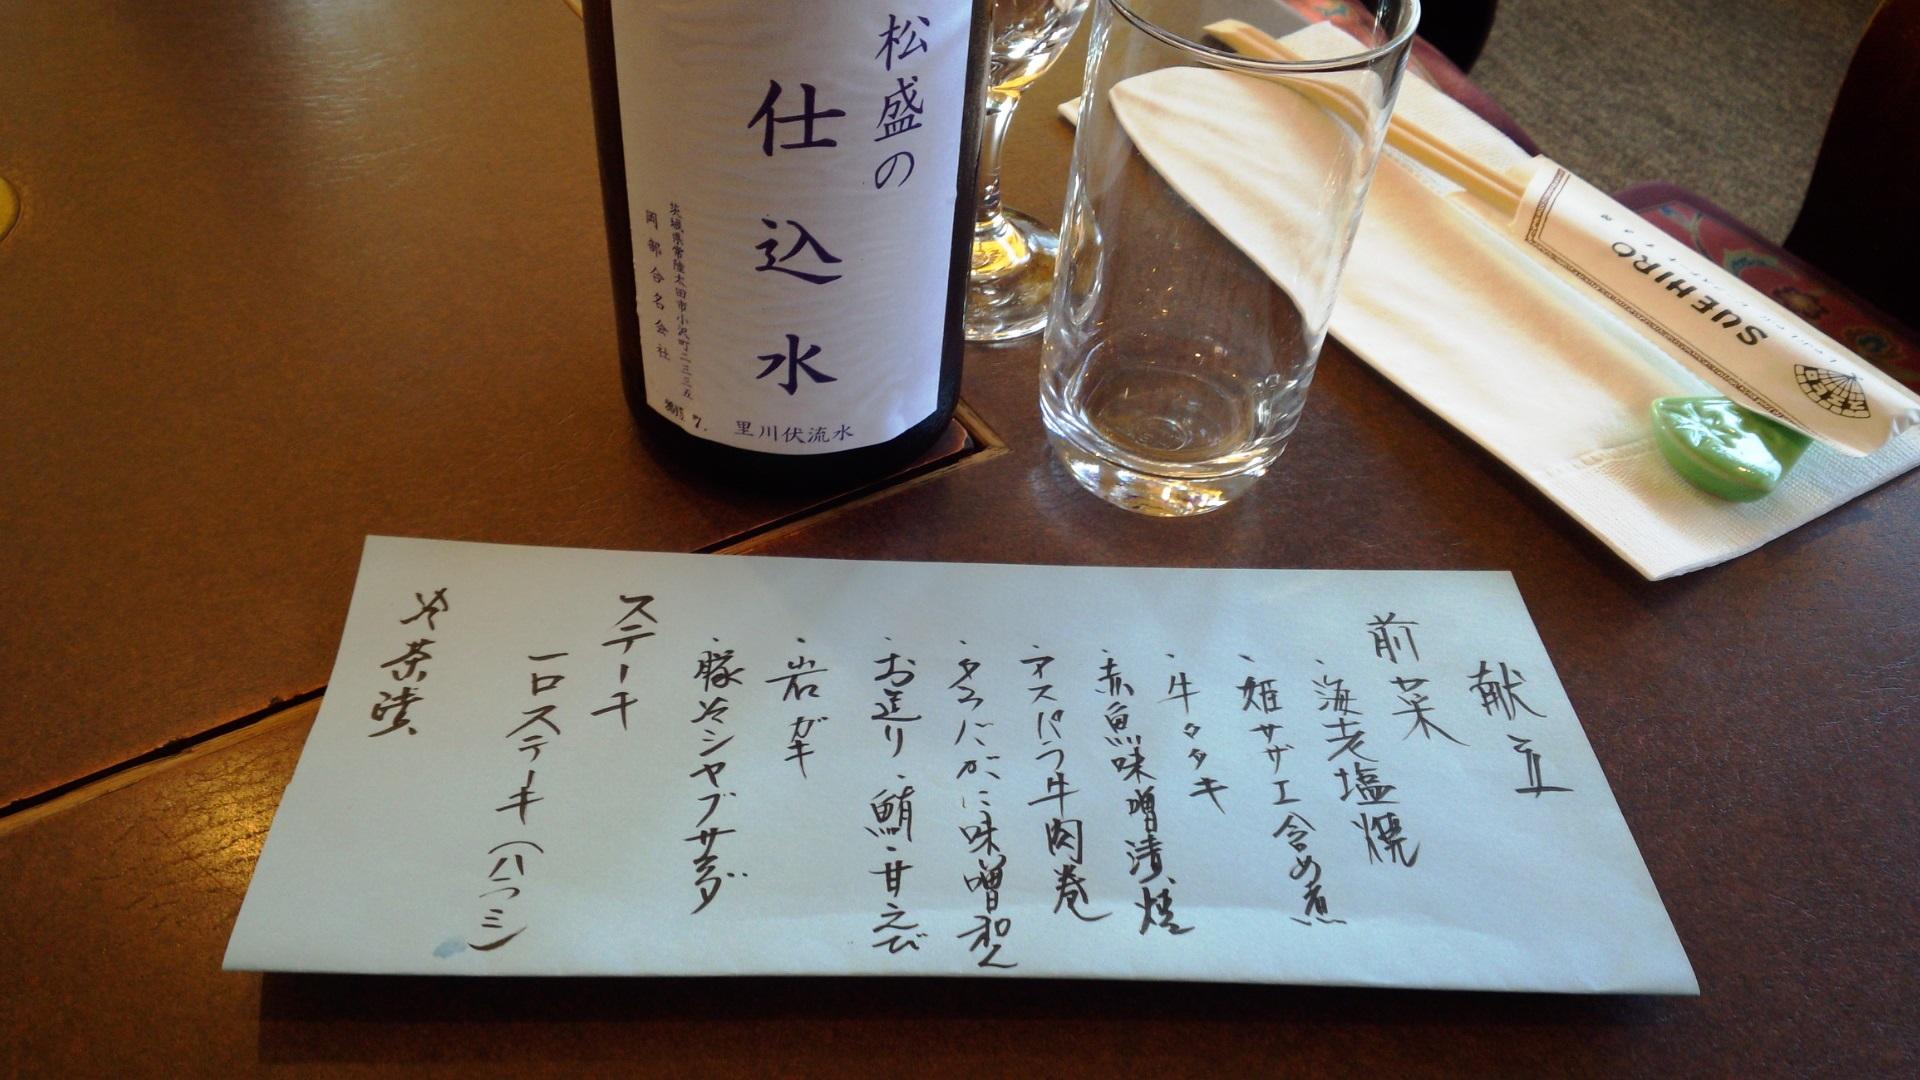 松盛の
仕込水
茨城県常陸太田市小沢町二三三五
岡部合名会社
2015.7.
里川伏流水
SUEHIRO
献立
前菜
・海老塩焼
・姫サザエ含め煮
・牛タタキ
・赤魚味噌漬焼
・アスパラ牛肉巻
・タラバがに味噌和え
・お造り・鮪・甘えび
・岩ガキ
・豚冷シャブサラダ
ステーキ
一口ステーキ(ハラミ)
冷茶漬